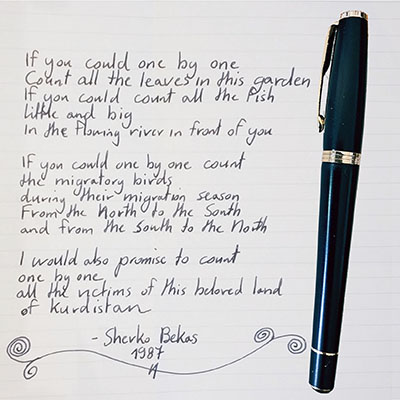 If you could one by one
Count all the leaves in this garden
If you could count all the fish
little and big
In the flowing river in front of you
If you could one by one count
the migratory birds
during their migration season
From the North to the South
and from the South to the North
I would also promise to count
one by one
all the victims of this beloved land
of Kurdistan
- Sherko Bekas
1987